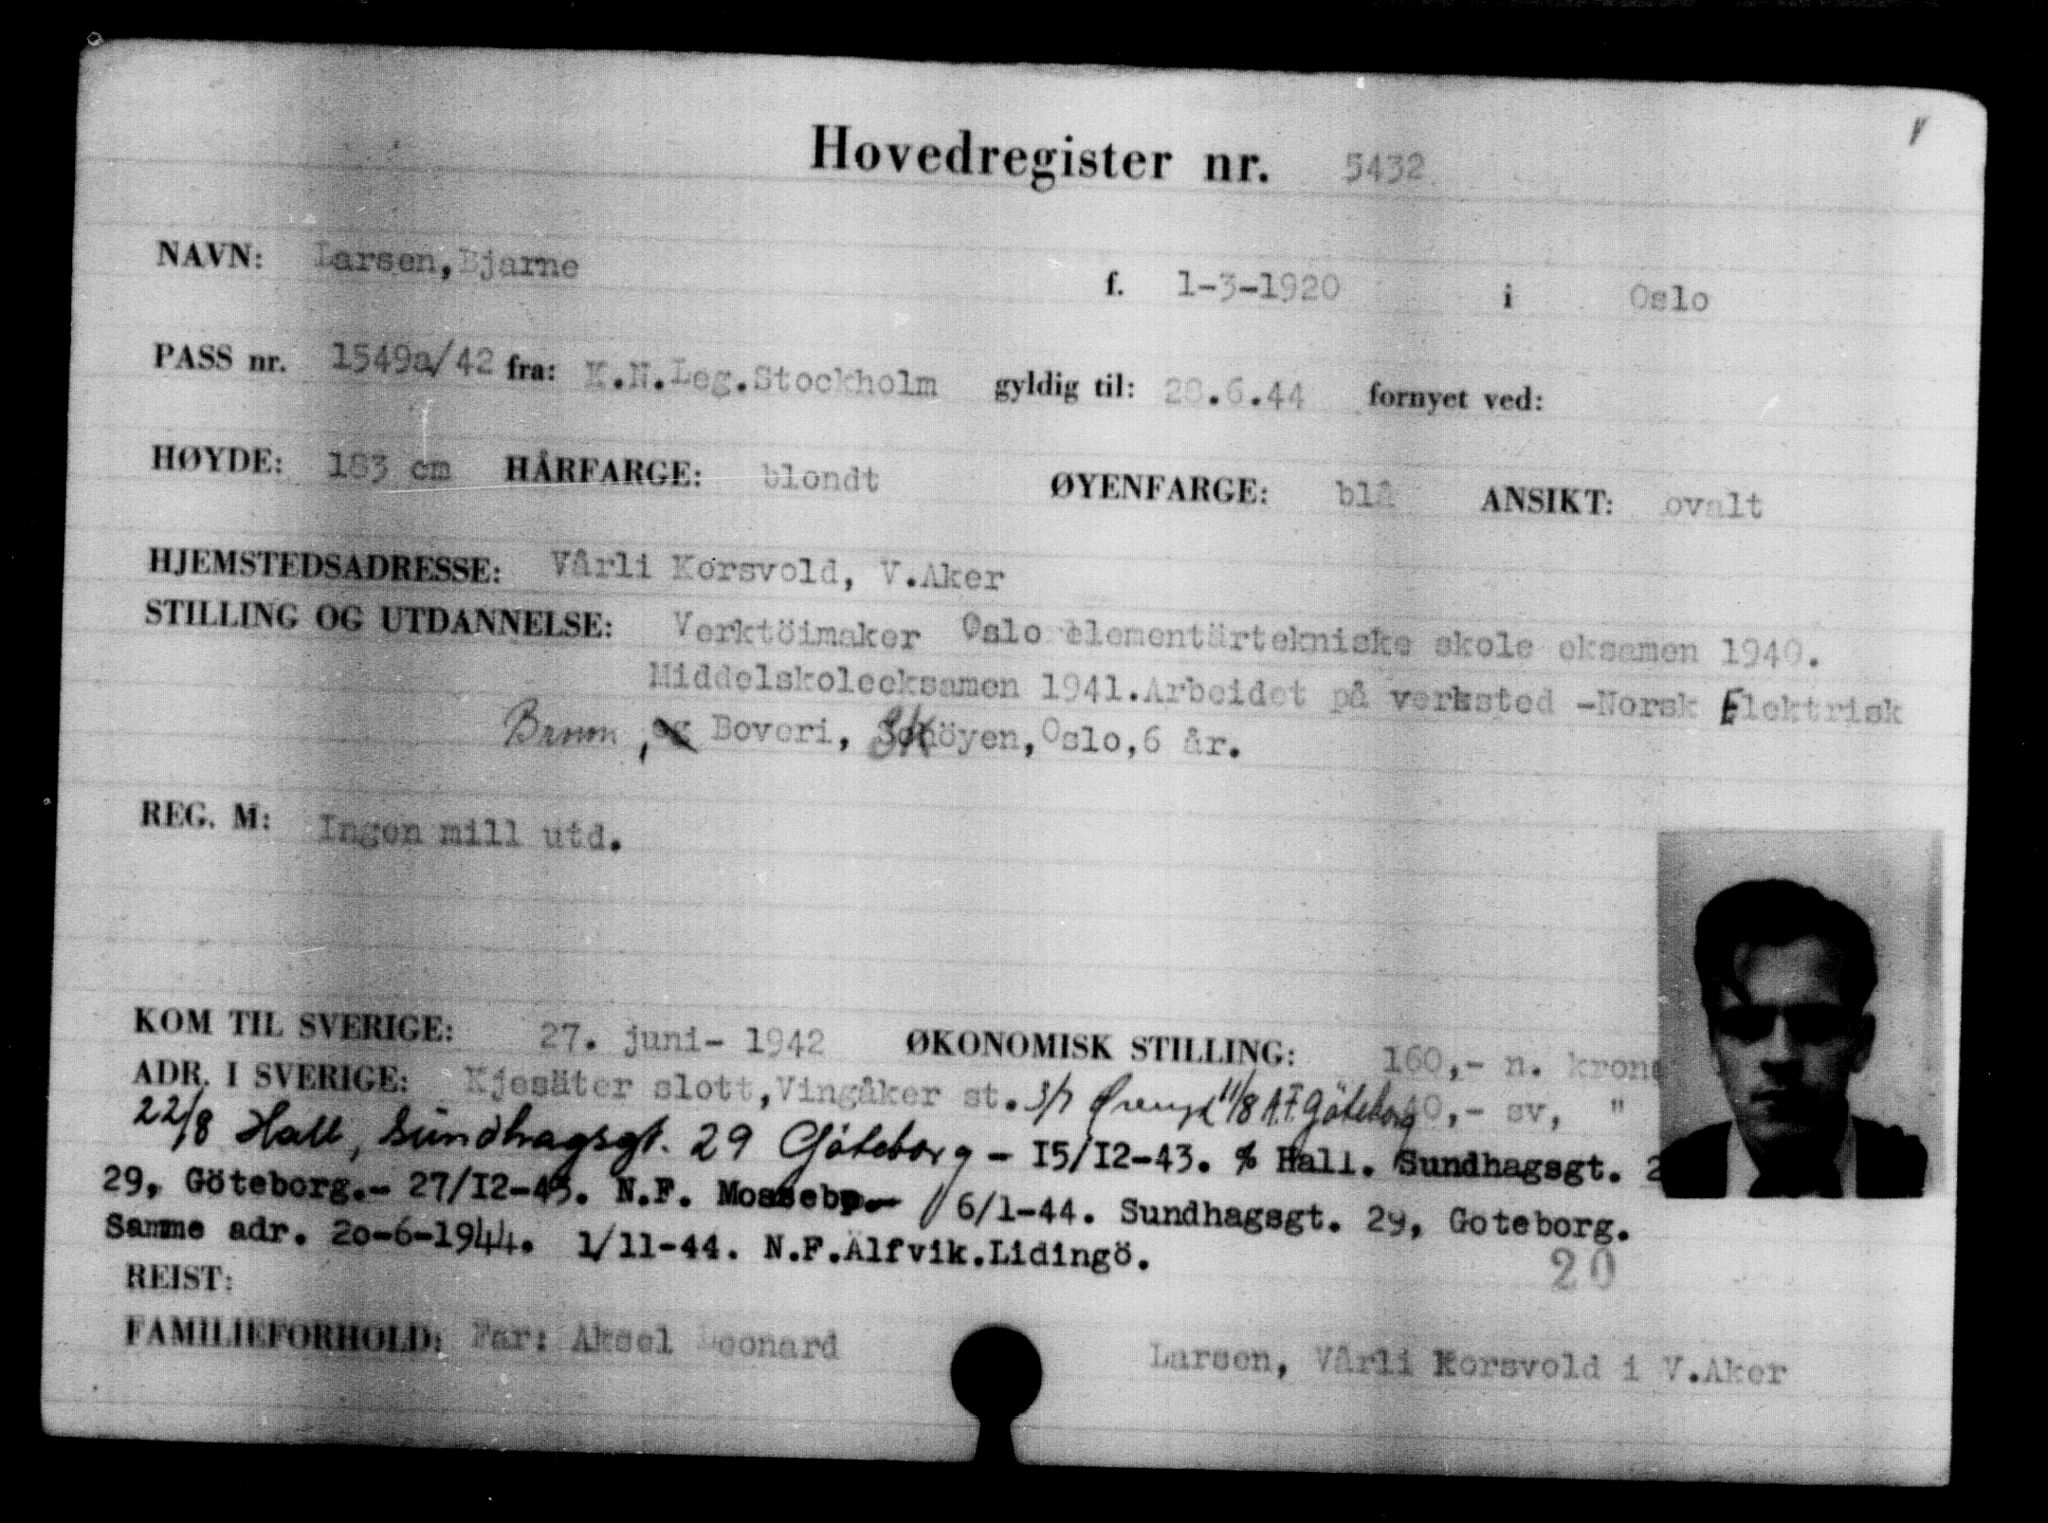 Hovedregister nr. 5432
NAVN: Larsen, Bjarne f. 1-3-1920 i Oslo
PASS nr. 1549a/42 fra: K.N.Leg.Stockholm gyldig til: 28.6.44 fornyet ved:
HØYDE: 183 cm HÅRFARGE: blondt ØYENFARGE: blå ANSIKT: ovalt
HJEMSTEDSADRESSE: Vårli Korsvold, V.Aker
STILLING OG UTDANNELSE: Verktöimaker Oslo elementärtekniske skole eksamen 1940.
Middelskoleeksamen 1941.Arbeidet på verksted -Norsk Elektrisk
Brown, og Boveri, Sköyen, Oslo, 6 år.
REG. M: Ingen mill utd.
KOM TIL SVERIGE: 27. juni- 1942 ØKONOMISK STILLING: 160,- n. krone
ADR. I SVERIGE: Kjesäter slott, Vingåker st. 3/7 11/8 A.F. Göteborg 40,- sv, "
22/8 Hall, Sundhagsgt. 29 Göteborg - 15/12-43. % Hall. Sundhagsgt. 2
29, Göteborg.- 27/12-43. N.F. Mosseb 6/1-44. Sundhagsgt. 29, Goteborg.
Samme adr. 20-6-1944. 1/11-44. N.F.Älfvik.Lidingö.
20
REIST:
FAMILIEFORHOLD: Far: Aksel Leonard Larsen, Vårli Korsvold i V.Aker